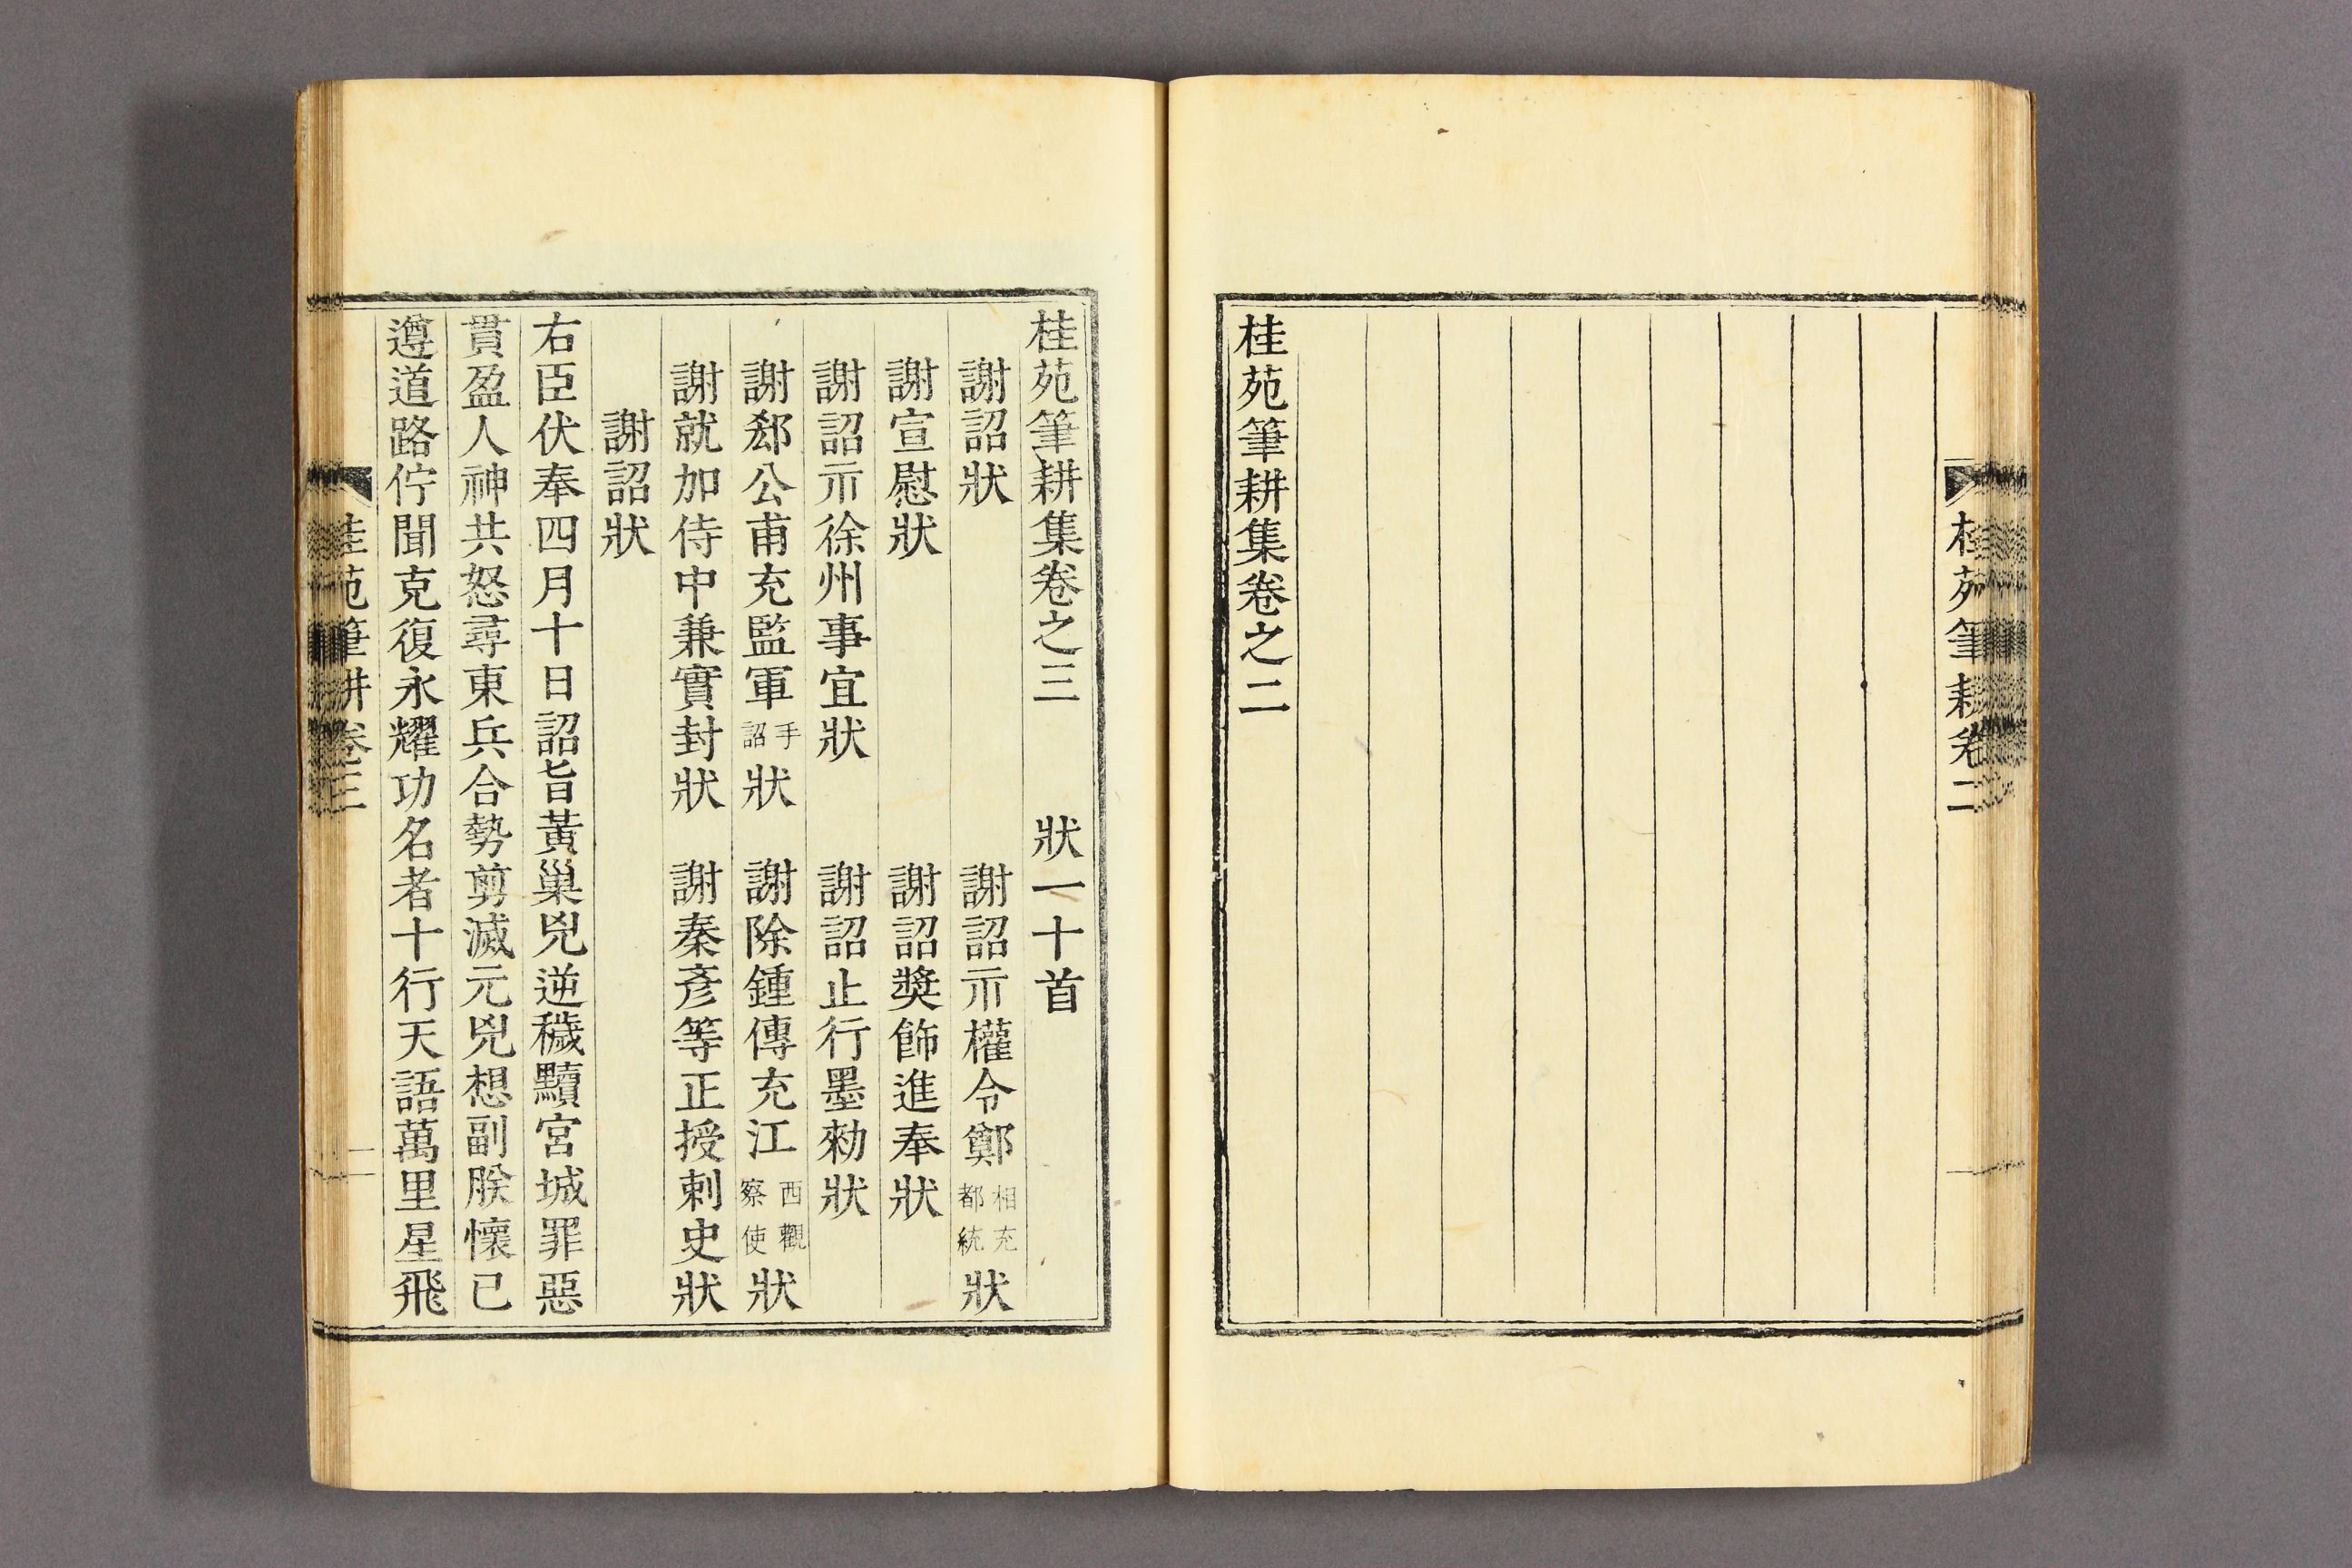 桂苑筆耕卷二
桂苑筆耕集卷之二
桂苑筆耕集卷之三　狀一十首
謝詔狀　謝詔示權令鄭相充都統狀
謝宣慰狀　謝詔奬飾進奉狀
謝詔示徐州事宜狀　謝詔止行墨勑狀
謝郄公甫充監軍手詔狀　謝除鍾傳充江西觀察使狀
謝就加侍中兼實封狀　謝秦彥等正授刺史狀
謝詔狀
右臣伏奉四月十日詔旨黃巢兇逆穢黷宮城罪惡
貫盈人神共怒尋東兵合勢剪滅元兇想副朕懷已
遵道路佇聞克復永耀功名者十行天語萬里星飛
桂苑筆耕卷三
一